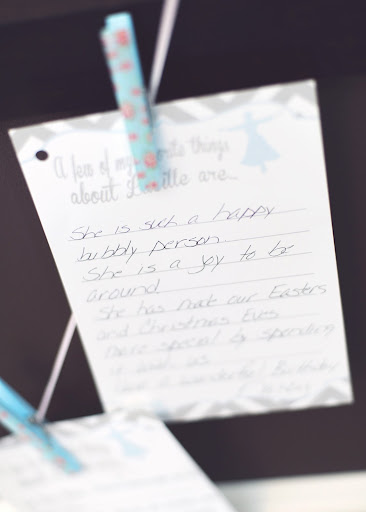 A few of my favorite things
about Lucille are...
She is such a happy
bubbly person.
She is a joy to be
around
She has made our Easters
and Christmas Eves
more special by spending
it with us.
Have a wonderful Birthday